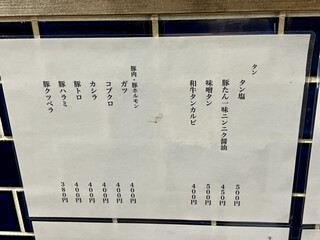 タン
タン塩 500円
豚たん一味ニンニク醤油 450円
味噌タン 500円
和牛タンカルビ 400円
豚肉・豚ホルモン
ガツ 400円
コブクロ 400円
カシラ 400円
豚トロ 400円
豚ハラミ 400円
豚クツベラ 380円